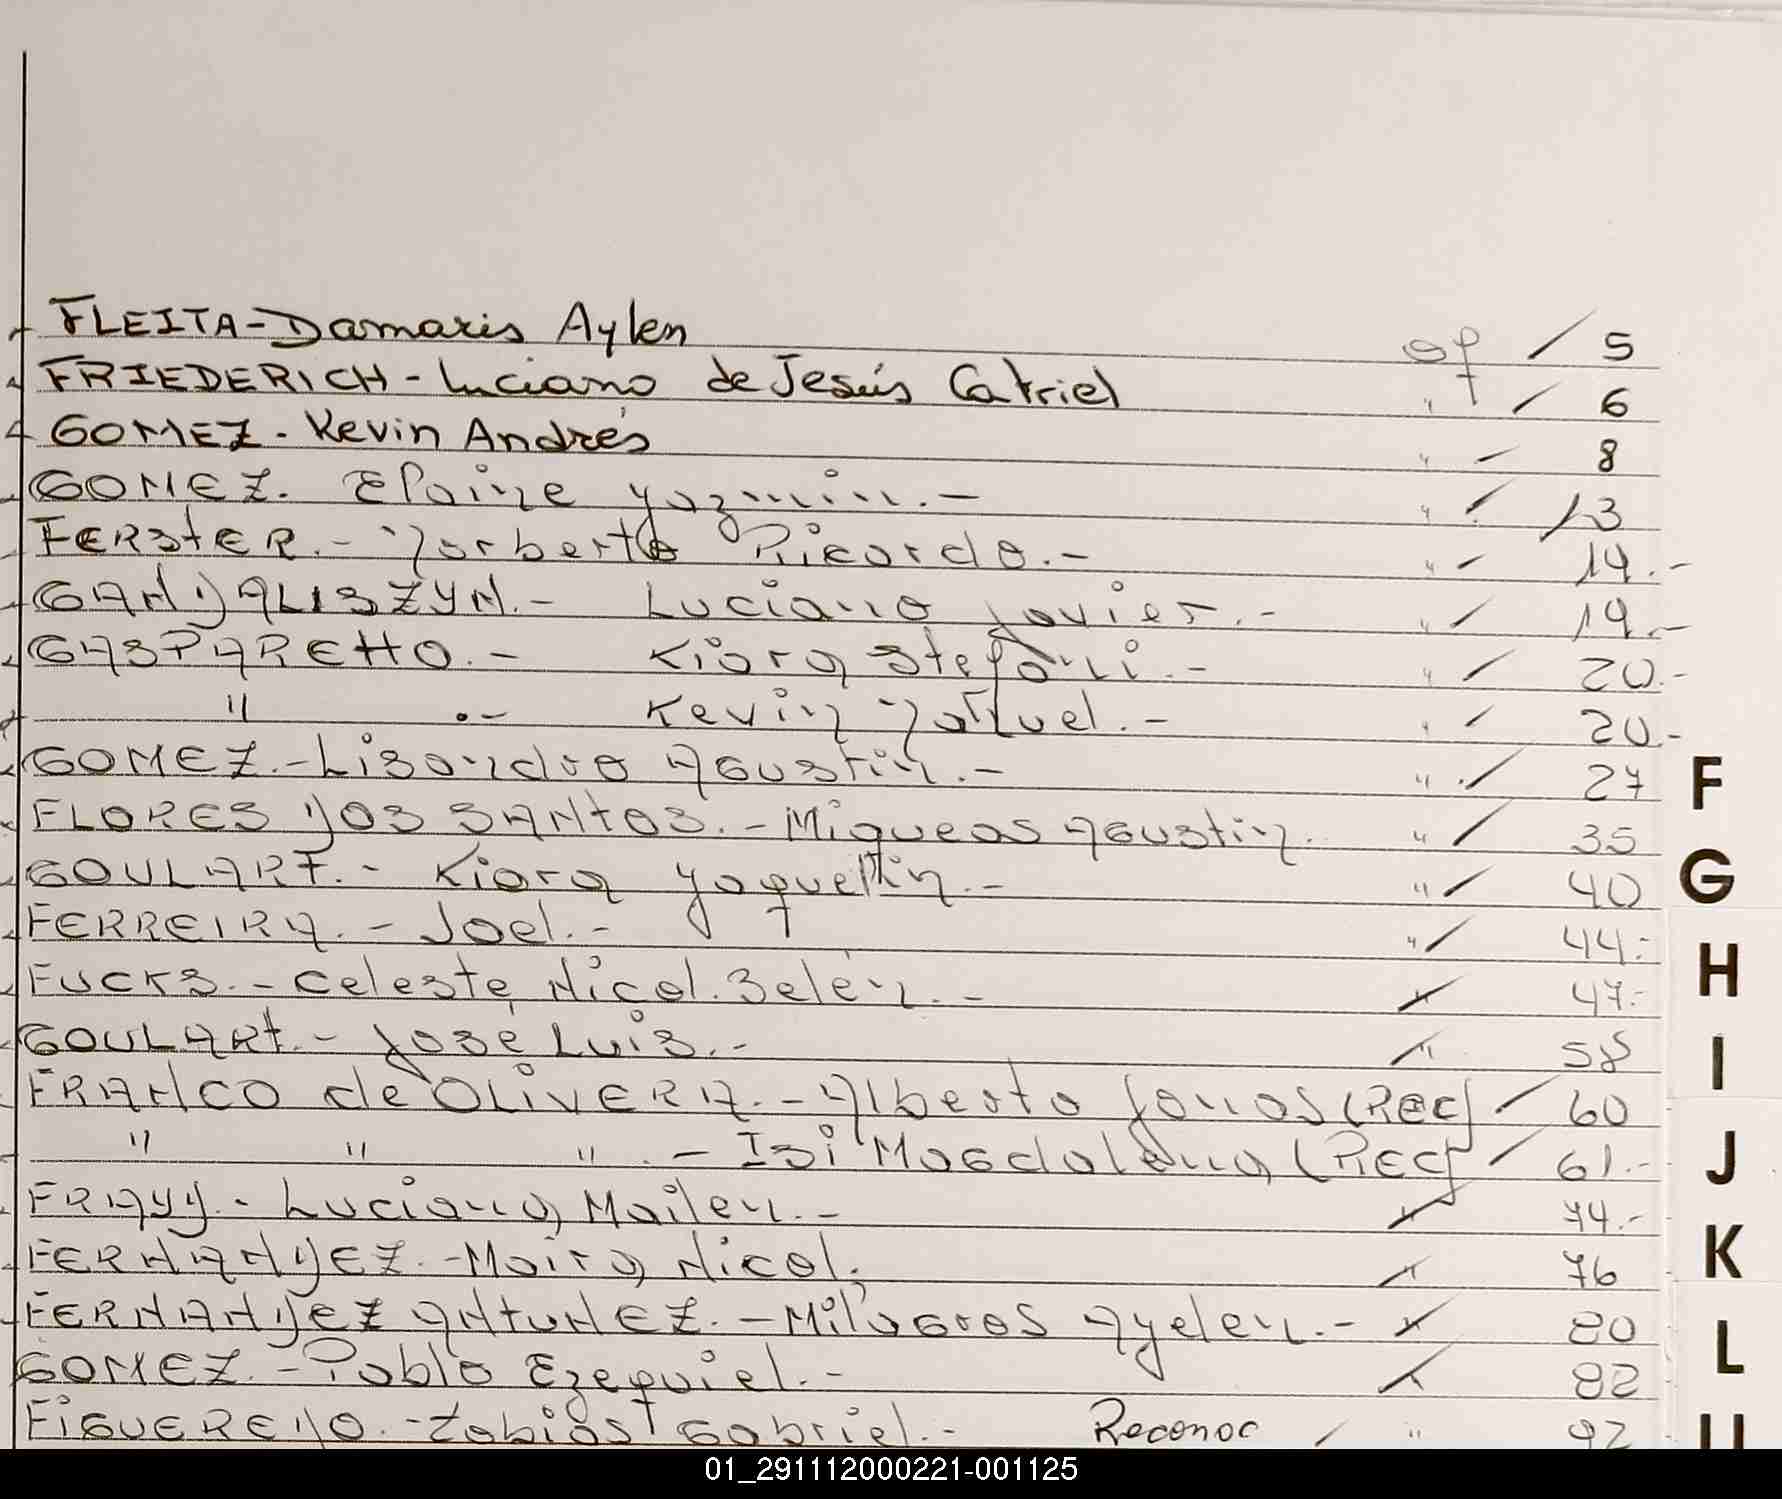 FLEITA - Damaris Aylen of / 5
FRIEDERICH - Luciano de Jesús Catriel " / 6
GOMEZ - Kevin Andrés " / 8
GOMEZ. Elaine Yazmin. - " / 13
FERSTER. - Norberto Ricardo. - " / 14. -
GANDALISZYN. - Luciano Javier. - " / 19. -
GASPARETTO. - Kiara Stefani. - " / 20. -
" . - Kevin Nahuel. - " / 20. -
GOMEZ. - Lisandro Agustin. - " / 27
FLORES DOS SANTOS. - Miqueas Agustin. " / 35
GOULART. - Kiara Yaquelin. - " / 40
FERREIRA. - Joel. - " / 44. -
FUCKS. - Celeste Nicol. Belén. - " / 47. -
GOULART. - José Luis. - " / 58
FRANCO de OLIVERA. - Alberto Jonas (Rec) / 60
" " " . - Isi Magdalena (Rec) / 61. -
FRAYY. - Luciana Mailen. - " / 74. -
FERNANDEZ. - Maira Nicol. " / 76
FERNANDEZ ANTUNEZ. - Milagros Ayelen. - " / 80
GOMEZ. - Pablo Ezequiel. - " / 82
FIGUEREDO. - Tobias Gabriel. - Reconoc / " 92
F
G
H
I
J
K
L
01_291112000221-001125